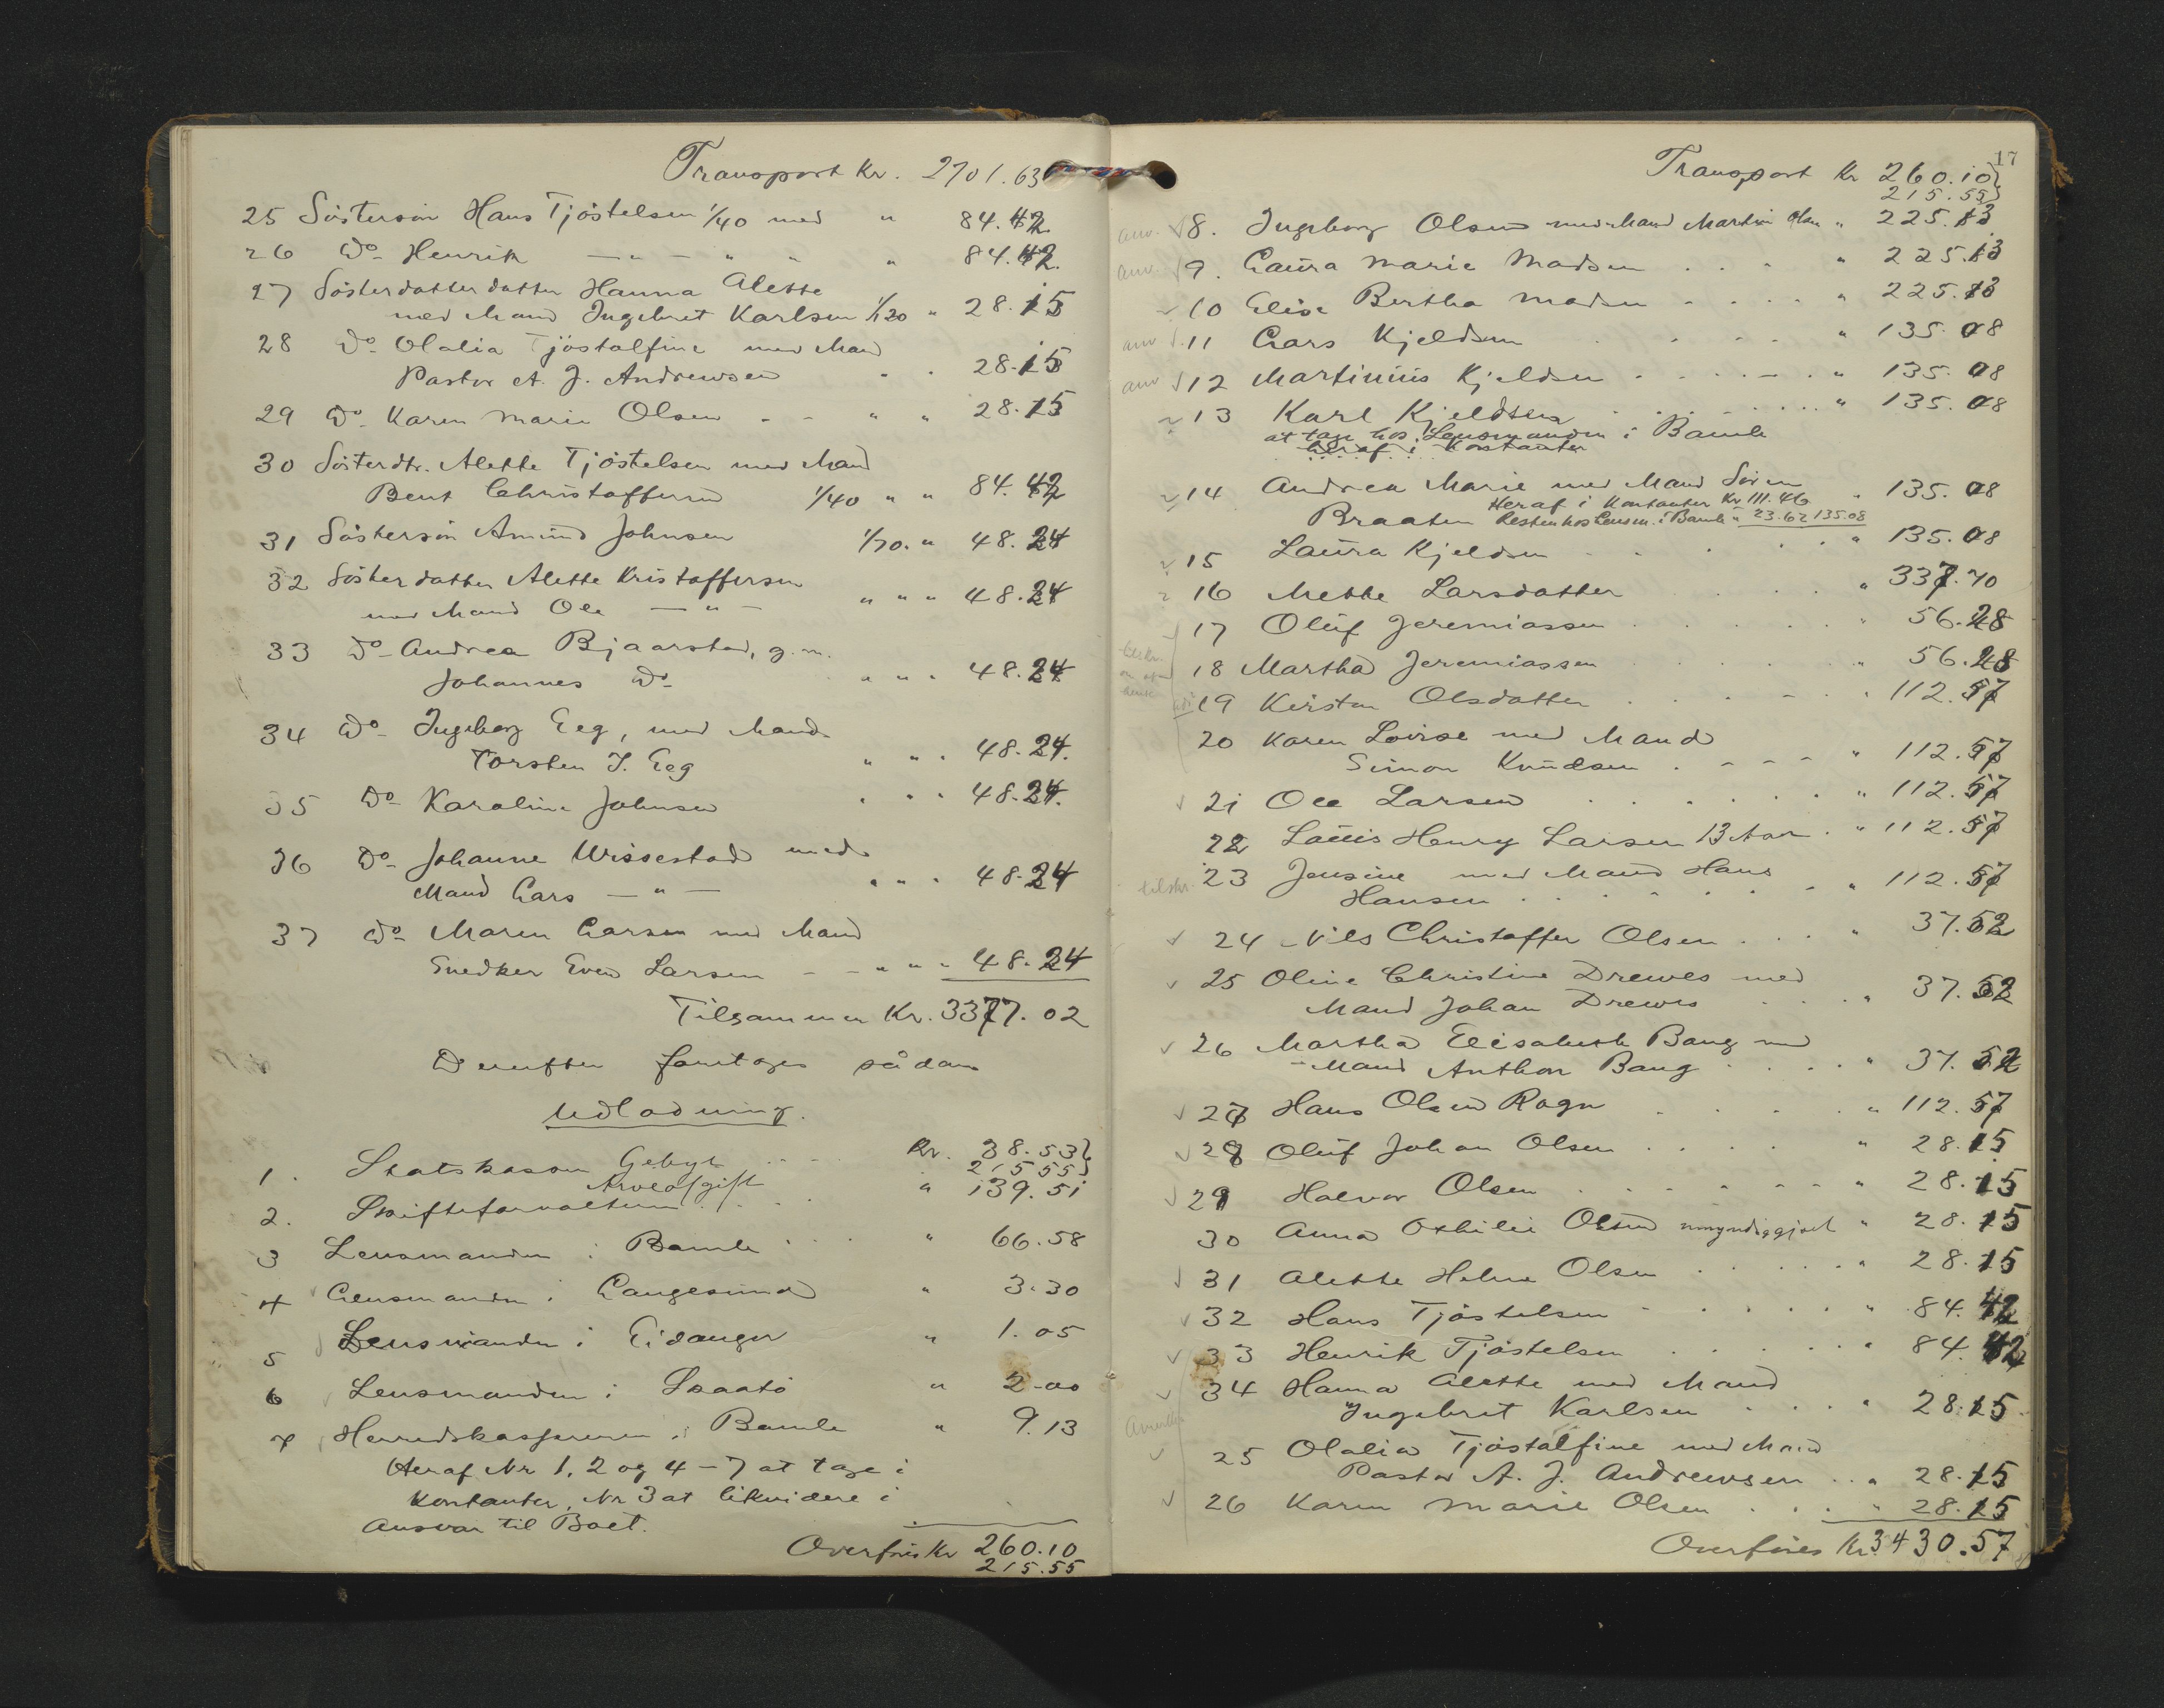 Transport Kr. 2701.63
25 Søstersøn Hans Tjøstelsen 1/40 med " 84.42
26 Do- Henrik — " — " " " 84.42.
27 Søsterdatter datter Hanna Alette
med Mand Ingebret Karlsen 1/120 " 28.15
28 Do- Olalia Tjøstolfine med Man
Pastor A. J. Andrewsen " . 28.15
29 Do- Karen Marie Olsen - - " " 28.15
30 Søsterdtr. Alette Tjøstelsen med Man
Bent Christoffersen 1/40 " " 84.42
31 Søstersøn Amund Johnsen 1/70. " 48.24
32 Søsterdatter Alette Kristoffersen
med Mand Ole — " — " " " 48.24
33 Do- Andrea Bjaarstad, g.m.
Johannes Do- " " " 48.24
34 Do- Ingeborg Eeg, med Mand
Torsten J. Eeg " " " 48.24.
35 Do- Karoline Johnsen " " " 48.24.
36 Do- Johanne Urssestad med
Mand Lars — " — " " " 48.24
37 Do- Maren Larsen med Mand
Snedker Even Larsen - - " " " 48.24
Tilsammen Kr. 3377.02
Derefter foretoges sådan
Udlodning.
1. Statskassen Gebyr .... Kr. 38.53}
Arveafgift 215 55}
2. Skifteforvalteren . . . " 139.51
3 Lensmanden i Bamle . . . " 66.58
4 Lensmanden i Langesund " 3.30
5 Lensmanden i Eidanger " 1.05
6 Lensmanden i Skaatø " 2-00
7 Herredskassereren i Bamle " 9.13
Heraf Nr 1, 2 og 4–7 at tage i
Kontanter, Nr 3 at likvidere i
Ansvar til Boet.
Overføres Kr 260.10
215.55
17
Transport Kr 260.10}
215.55}
anv. 8. Ingeborg Olsen med Mand Martin Olsen " 225.13
anv. 9. Laura Marie Madsen . . . " 225.13
10 Elise Bertha Madsen - . . . " 225.13
anv 11 Lars Kjeldsen . . . . " 135.08
anv 12 Martinius Kjeldsen . . . - . " 135.08
13 Karl Kjeldsen . . . . . . . " 135.08
at tage hos Lensmanden i Bamle
heraf i Kontanter
14 Andrea Marie med Mand Søren " 135.08
Heraf i Kontanter Kr 111.46
Braaten Resten hos Lensm. i Bamle " 23.62 135.08
15 Laura Kjeldsen . . . . . " 135.08
16 Mette Larsdatter . . . " 337.70
17 Oluf Jeremiassen . . . . . " 56.28
18 Martha Jeremiassen . . . . . " 56.28
19 Kirsten Olsdatter . . . . - . " 112.57
20 Karen Lovise med Mand
Simon Knudsen . - - - " 112.57
21 Ole Larsen . . . . . . " 112.57
22 Louis Henry Larsen 13 Aar . " 112.57
tilskr. 23 Jensine med Mand Hans
Hansen . . . . . . . - " 112.57
24 Nils Christoffer Olsen . . . " 37.52
25 Oline Christine Drewes med
Mand Johan Drewes . . . " 37.52
26 Martha Elisabeth Bang med
Mand Anthon Bang . . . . " 37.52
27 Hans Olsen Rogn . . . . " 112.57
28 Oluf Johan Olsen . . . . " 28.15
29 Halvor Olsen . . - . - - " 28.15
30 Anna Othilie Olsen umyndiggjort " 28.15
31 Alette Helene Olsen . . . . . " 28.15
32 Hans Tjøstelsen - . . . . " 84.42
33 Henrik Tjøstelsen . . . . . " 84.42
34 Hanna Alette med Mand
Ingebret Karlsen . . . " 28.15
25 Olalia Tjøstalfine med Mand
Pastor A. J. Andrewsen . . " 28.15
26 Karen Marie Olsen . . . " 28.15
Overføres Kr. 3430.57